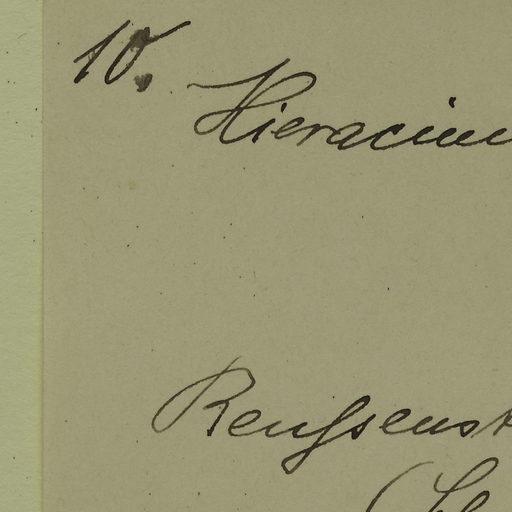 10.
Hieracium
Reußenst
(Le